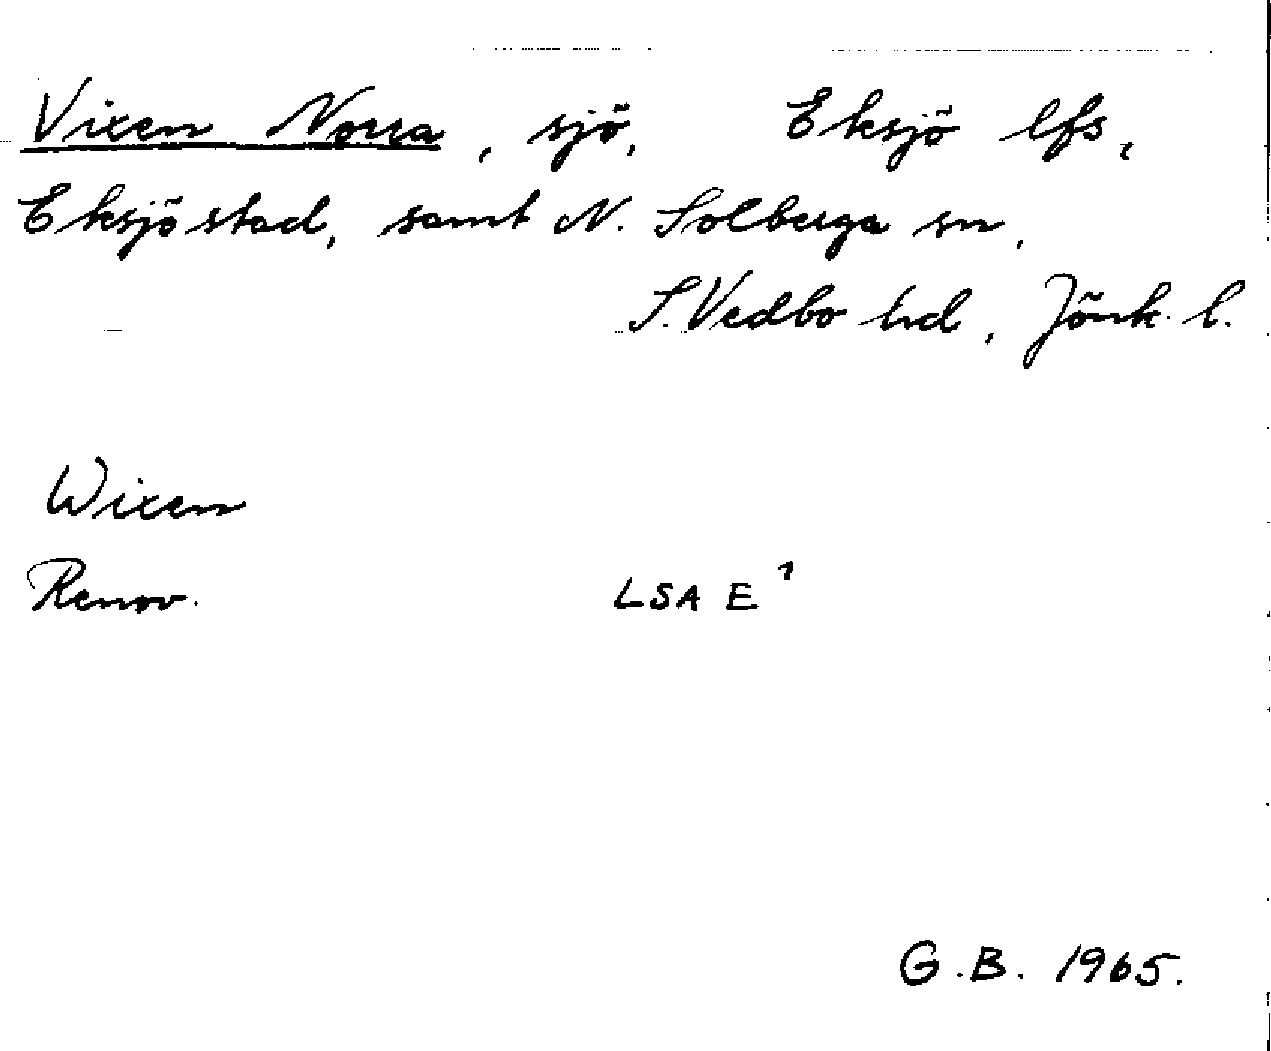 Vixen Norra, sjö, Eksjö lfs,
Eksjö stad, samt N. Solberga sn,
S. Vedbo hd, Jönk. l.
Wixen
Renov. LSA E 1
G.B. 1965.